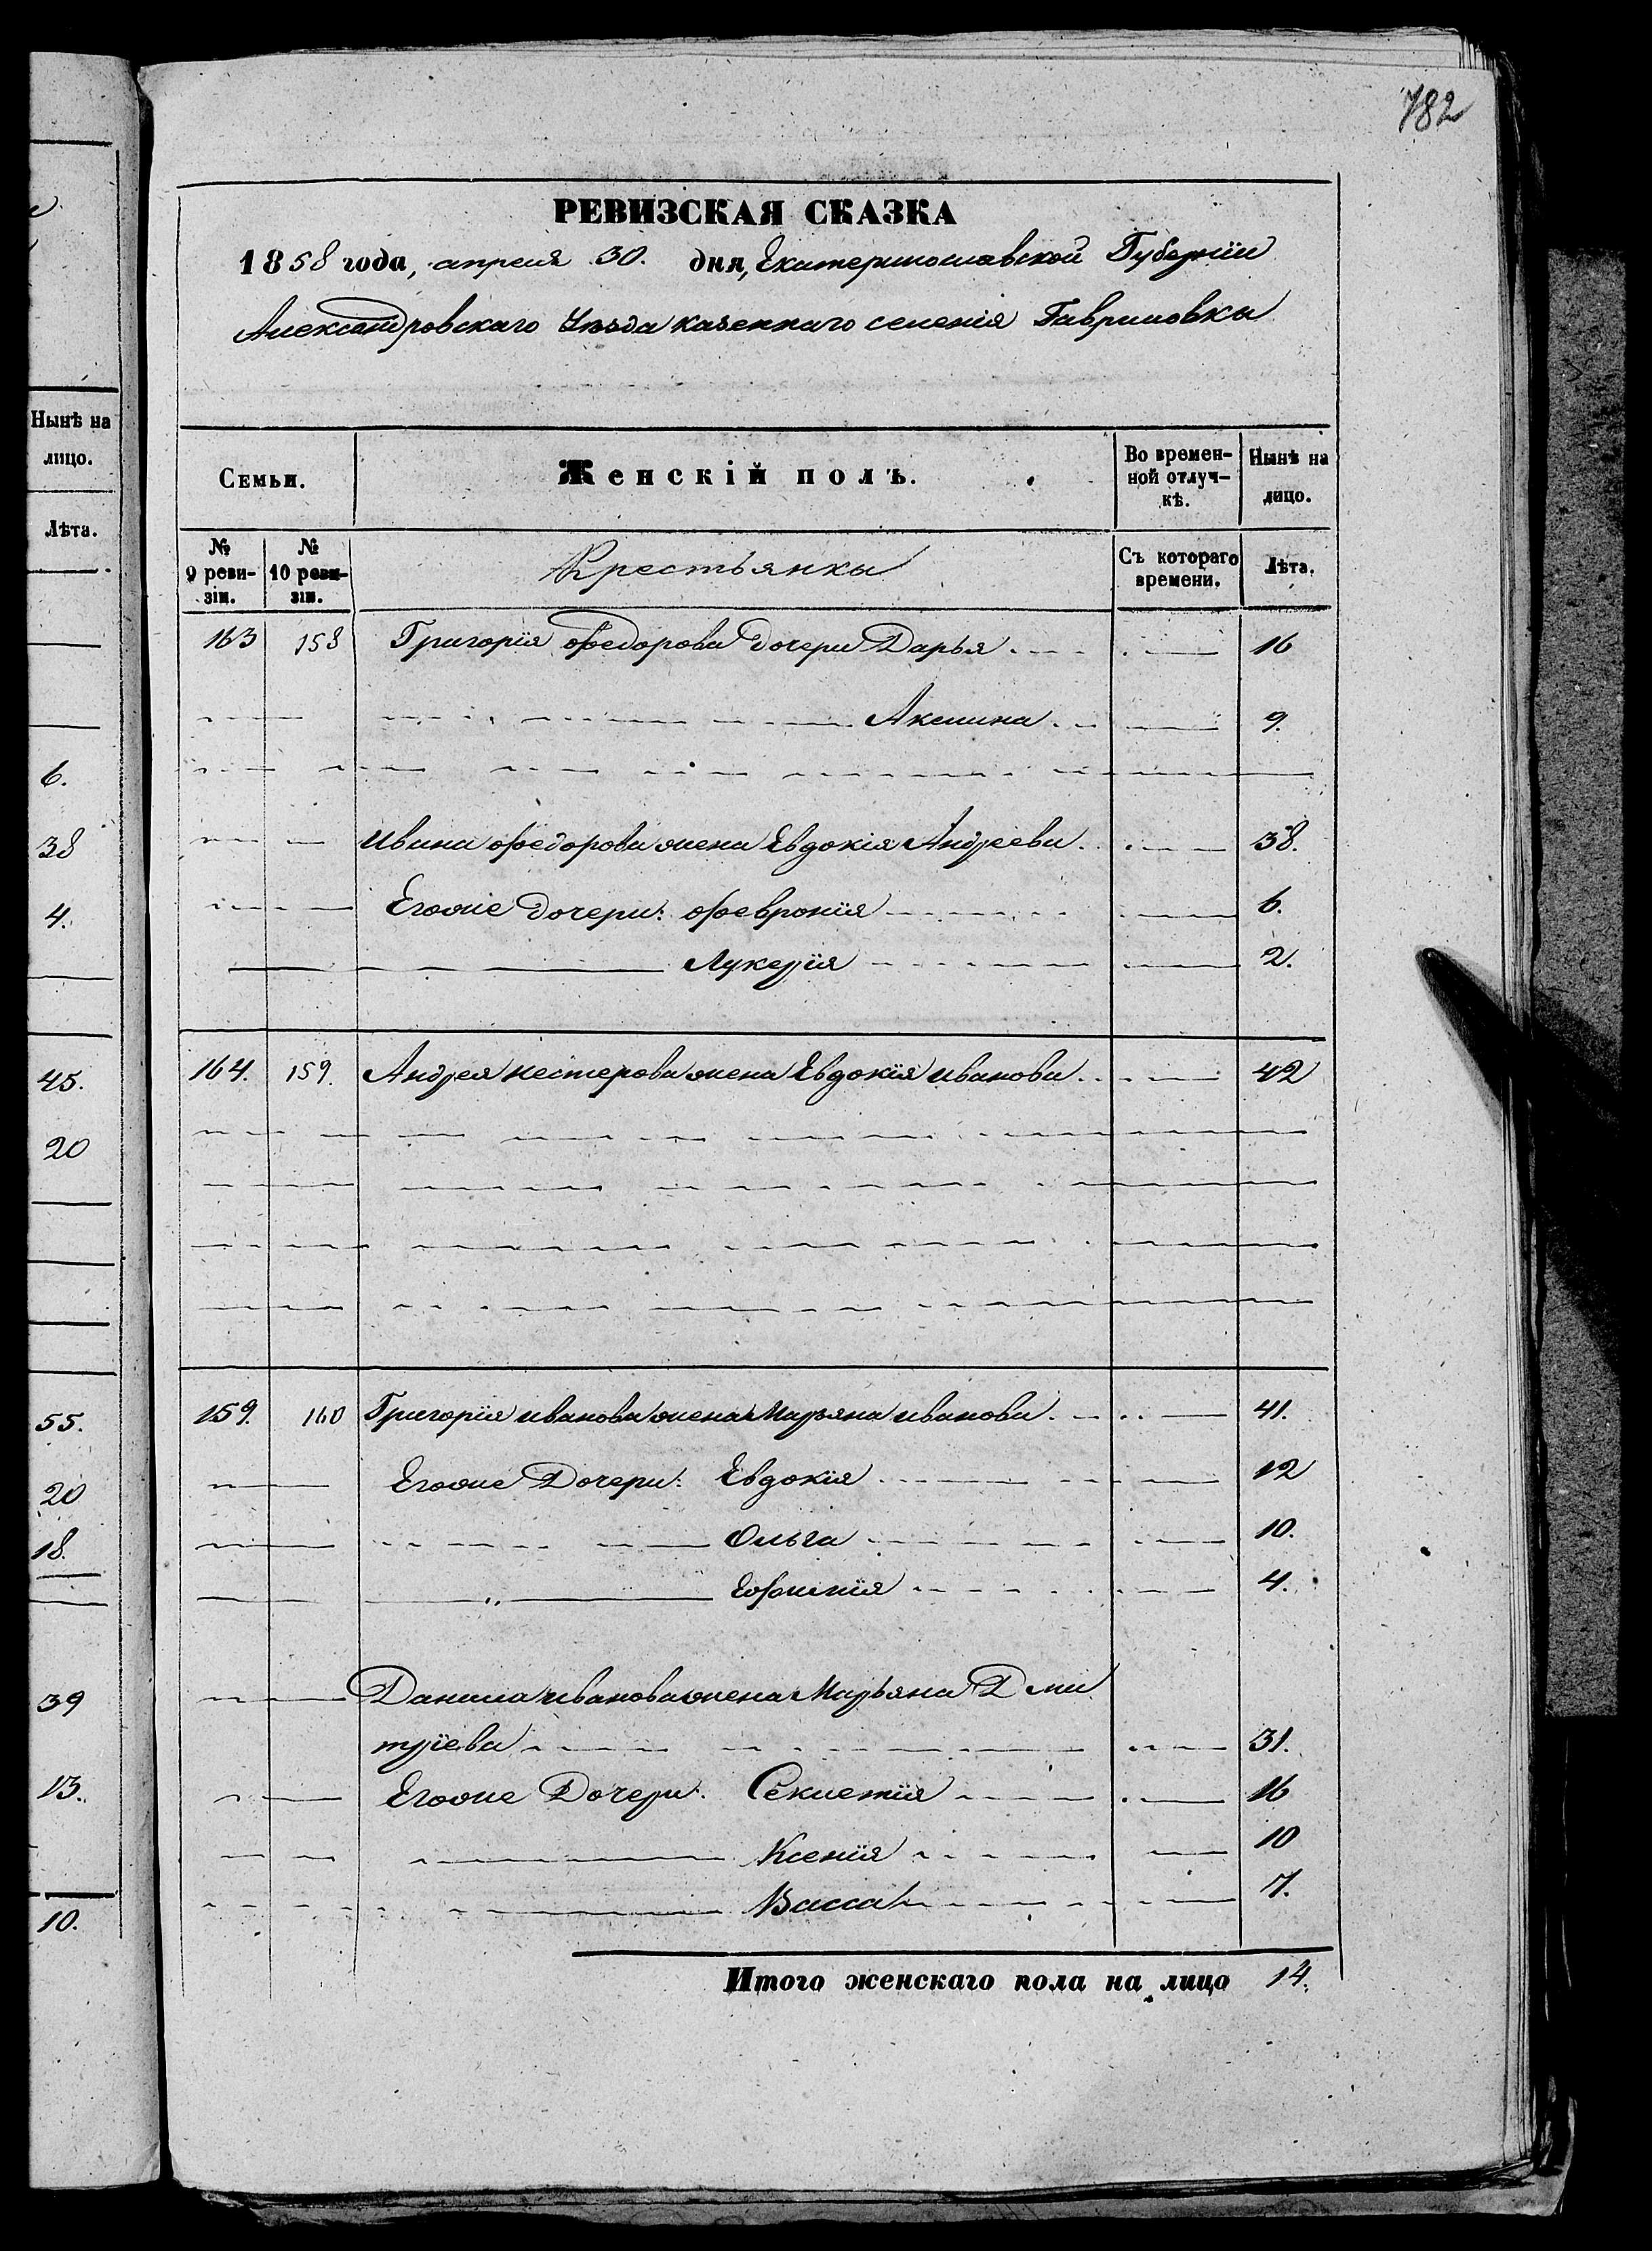 782
РЕВИЗСКАЯ СКАЗКА
1858 года, апреля 30. дня, Екатеринославской Губернiи
Александровскаго Уѣзда казеннаго селенiя Гавриловки
Семьи. Женскiй полъ. Во времен-ной отлуч-кѣ. Нынѣ на лицо.
№ 9 реви-зiи. № 10 реви-зiи. Крестьянки Съ котораго времени. Лѣта.
163 158 Григорiя Федорова дочери Дарья 16
Акилина 9.
Ивана Федорова жена Евдокiя Андреева 38.
Егоже дочери: Феврония 6.
Лукерiя 2.
164. 159. Андрея Нестерова жена Евдокiя Иванова 42
159. 160 Григорiя Иванова жена Марьяна Иванова 41.
Егоже Дочери: Евдокiя 12
Ольга 10.
Ефимiя 4.
Данила Иванова жена Марьяна Дми
трiева 31.
Егоже Дочери: Секлетiя 16
Ксенiя 10
Васса 7.
Итого женскаго пола на лицо 14.
Нынѣ на
лицо.
Лѣта.
6.
38
4.
45.
20
55.
20
18.
39
13.
10.